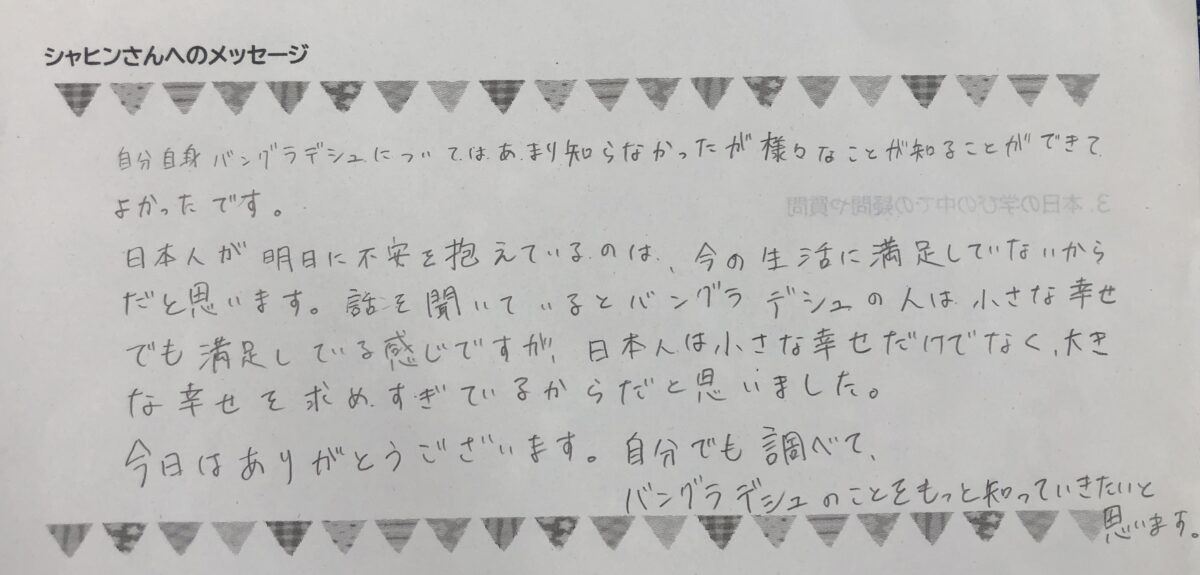 シャヒンさんへのメッセージ
自分自身バングラデシュについてはあまり知らなかったが様々なことが知ることができて
よかったです。
3. 本日の学びの中での疑問や質問
日本人が明日に不安を抱えているのは、今の生活に満足していないから
だと思います。話を聞いているとバングラデシュの人は小さな幸せ
でも満足している感じですが、日本人は小さな幸せだけでなく、大き
な幸せを求めすぎているからだと思いました。
今日はありがとうございます。自分でも調べて、
バングラデシュのことをもっと知っていきたいと
思います。